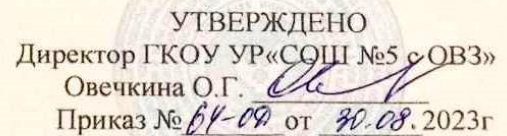 УТВЕРЖДЕНО
Директор ГКОУ УР«СОШ №5 с ОВЗ»
Овечкина О.Г.
Приказ № 64-ОД от 30.08.2023г